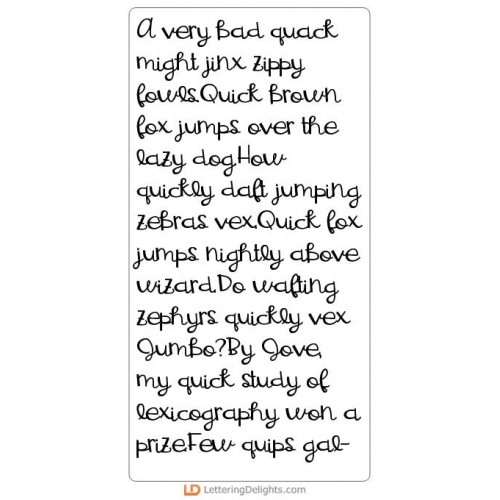 A very bad quack
might jinx zippy
fowls.Quick brown
fox jumps over the
lazy dog.How
quickly daft jumping
zebras vex.Quick fox
jumps nightly above
wizard.Do wafting
zephyrs quickly vex
Jumbo?By Jove,
my quick study of
lexicography won a
prize.Few quips gal-
LD LetteringDelights.com